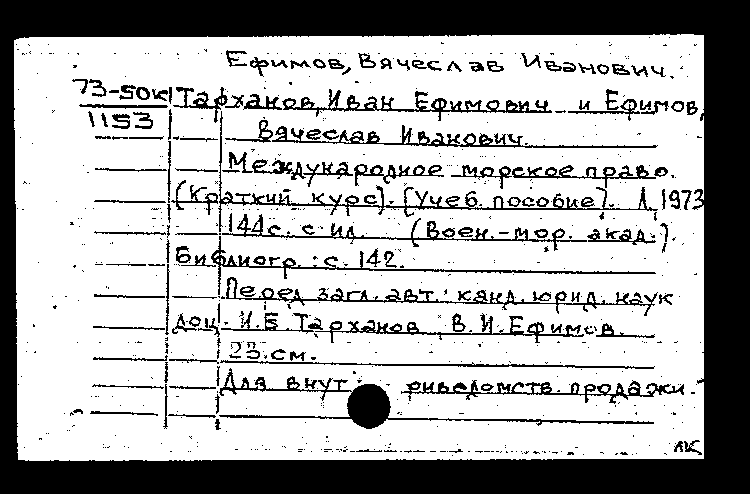 Ефимов, Вячеслав Иванович.
73-50к Тарханов, Иван Ефимович и Ефимов,
1153
Вячеслав Иванович.
Международное морское право.
(Краткий курс). [Учеб. пособие]. Л, 1973
144с. с ил. (Воен.-мор. акад.).
Библиогр.: с. 142.
Перед загл. авт.: канд. юрид. наук
доц. И.Е. Тарханов, В.И. Ефимов.
23.см.
Для внут риведомств. продажи.
АК